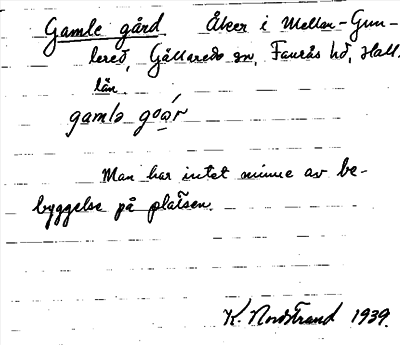 Gamle gård Åker i Mellan-Gun-
lered, Gällareds sn, Faurås hd, Hall.
län
gamlə goa̯r
Man har intet minne av be-
byggelse på platsen.
K. Nordstrand 1939.